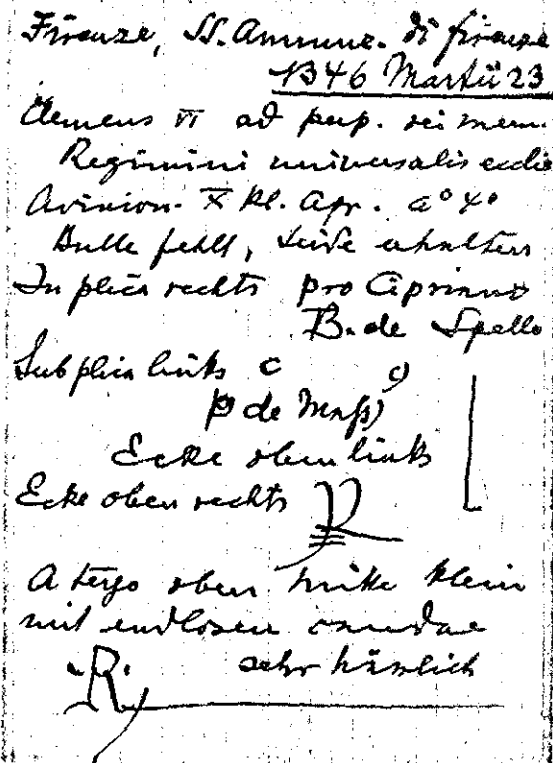 Firenze, SS. Annunz. di firenze
1346 Martii 23
Clemens VI ad perp. rei mem.
Regimini universalis ecclie
Avinion. X kl. Apr. a° 4°
Bulle fehlt, Seide erhalten
In plica rechts pro Cipriano
B. de Spello
Sub plica links c
P de
Ecke oben links
Ecke oben rechts
A tergo oben mitte klein
mit endlosen
sehr hässlich
R